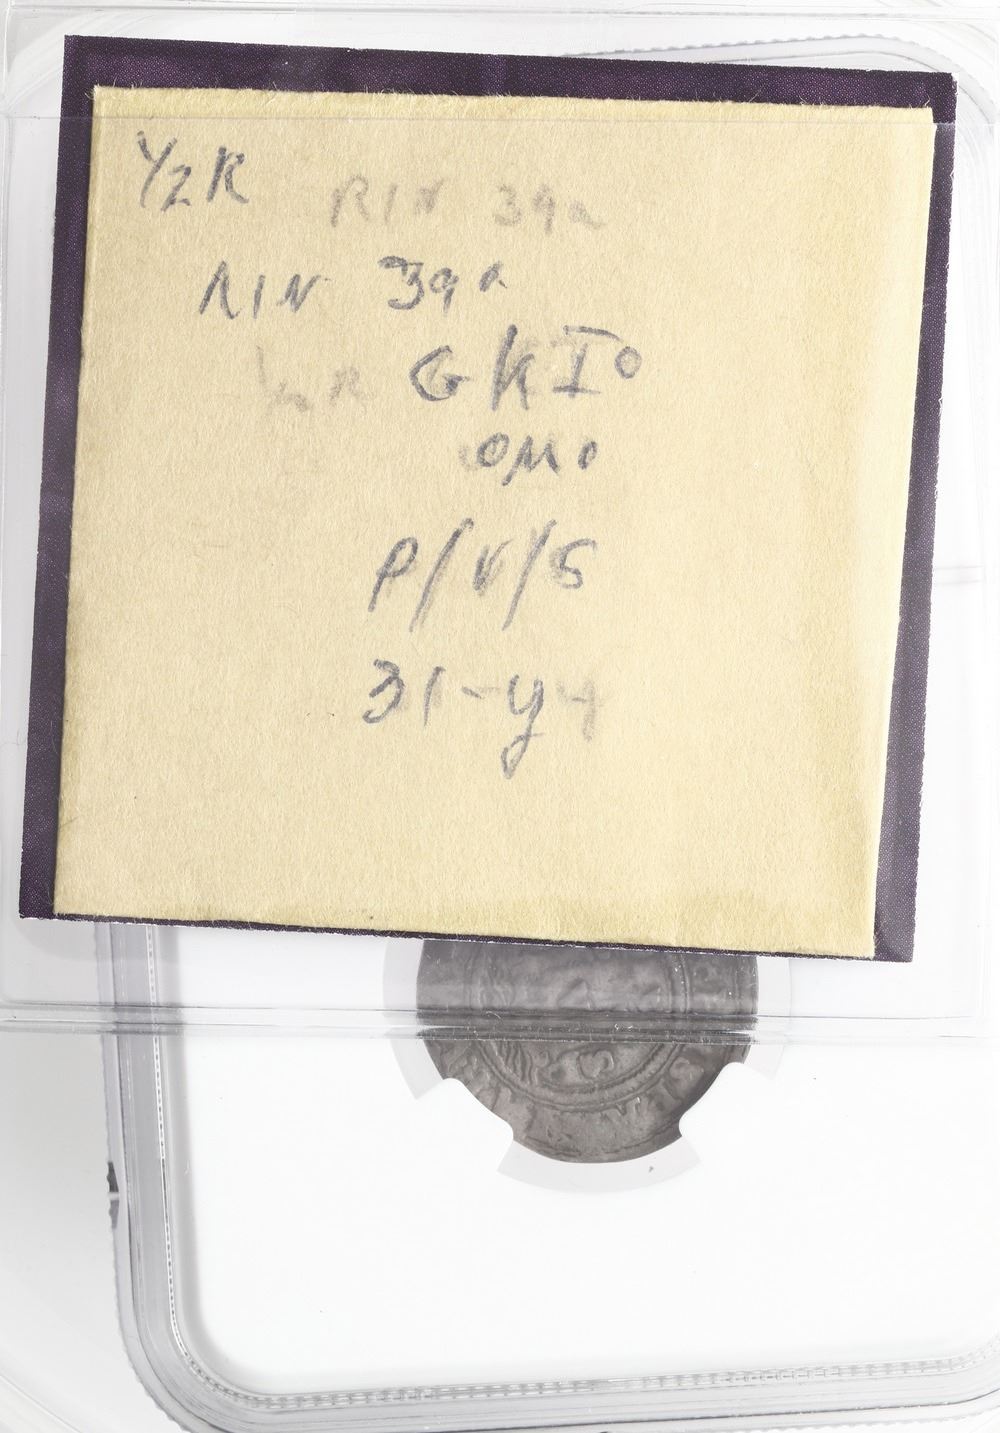 1/2R
RIN 39a
RIN 39a
1/2R GKIº
oMo
P/V/G
31-yy